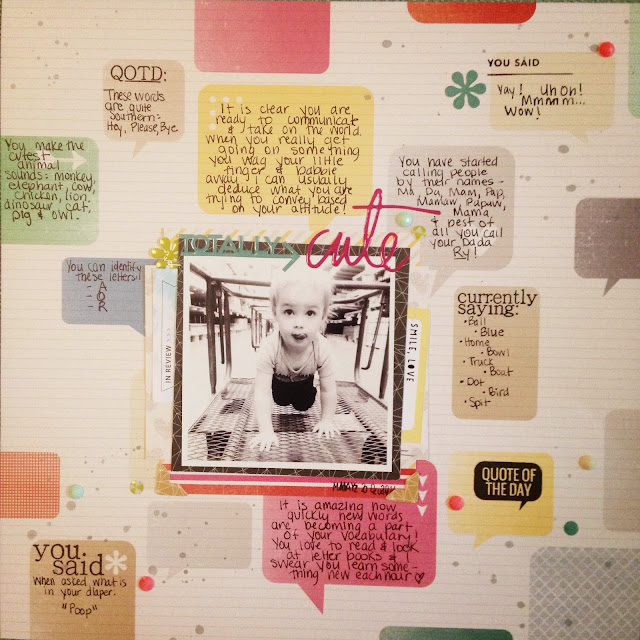 QOTD:
These words
are quite
southern:
Hey, Please, Bye
It is clear you are
ready to communicat
& take on the world.
When you really get
going on something
you wag your little
finger & babble
away. I can usually
deduce what you are
trying to convey based
on your attitude!
YOU SAID
Yay! Uh Oh!
Mmmm...
Wow!
You make the
cutest
animal
sounds: monkey,
elephant, cow,
chicken, lion,
dinosaur, cat,
pig & owl.
You have started
calling people
by their names -
Ma, Da, Mam, Pap,
Mamaw, Papaw,
Mama,
& best of
all you call
your Dada
Ry!
TOTALLY
cute
You can identify
these letters!
- A
- O
- R
IN REVIEW >>>
SMILE, LOVE
currently
saying:
• Ball
• Blue
• Home
• Bowl
• Truck
• Boat
• Dot
• Bird
• Spit
QUOTE OF
THE DAY
It is amazing how
quickly new words
are becoming a part
of your vocabulary!
You love to read & look
at letter books & I
swear you learn some-
thing new each hour
you
said
When asked what is
in your diaper:
"Poop"